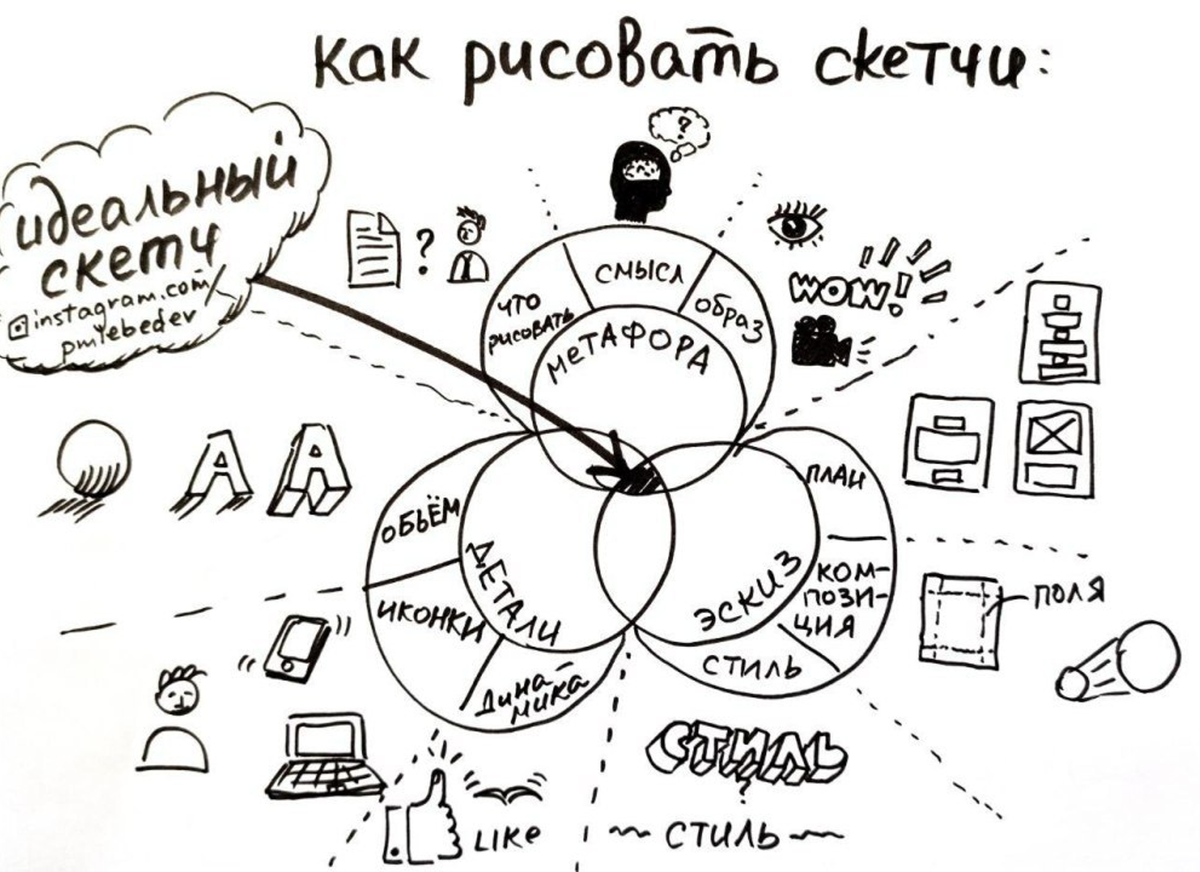 как рисовать скетчи:
?
идеальный
скетч
instagram.com/
pmlebedev
?
что
рисовать
смысл
образ
WOW!
метафора
А А
объём
иконки
дина-
мика
детали
план
ком-
пози-
ция
стиль
эскиз
поля
стиль
LIKE
стиль